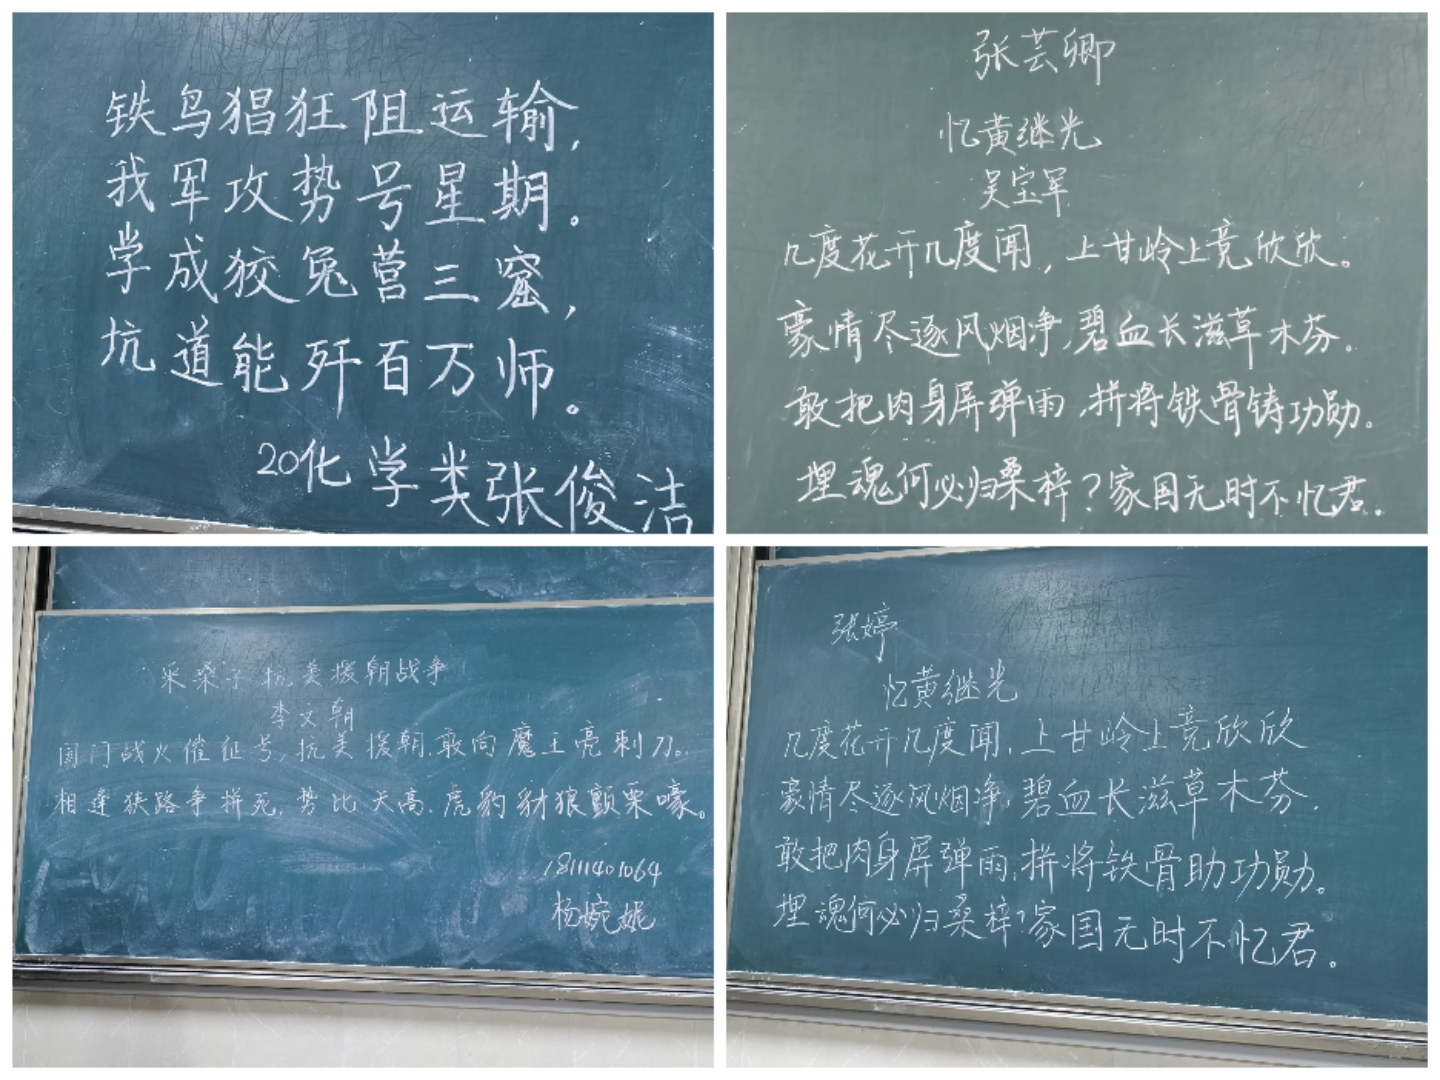 铁鸟猖狂阻运输,
我军攻势号星期。
学成狡兔营三窟,
坑道能歼百万师。
20化学类张俊洁
张芸卿
忆黄继光
吴宝军
几度花开几度闻,上甘岭上竞欣欣。
豪情尽逐风烟净,碧血长滋草木芬。
敢把肉身屏弹雨,拼将铁骨铸功勋。
埋魂何必归桑梓?家国无时不忆君。
采桑子·抗美援朝战争
李文朝
国门战火催征号,抗美援朝.敢向魔王亮刺刀。
相逢狭路争拼死,势比天高.虎豹豺狼颤栗嚎。
1811401064
杨婉妮
张婷
忆黄继光
几度花开几度闻,上甘岭上竞欣欣
豪情尽逐风烟净,碧血长滋草木芬.
敢把肉身屏弹雨,拼将铁骨助功勋。
埋魂何必归桑梓?家国无时不忆君。